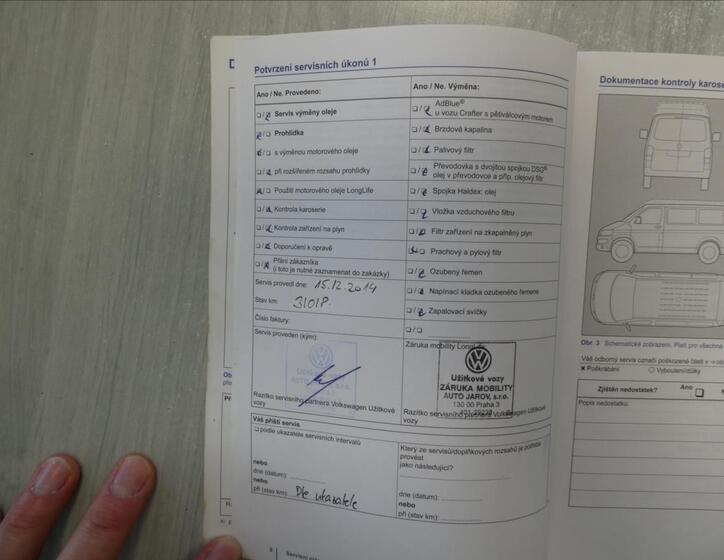 Potvrzení servisních úkonů 1
Ano / Ne. Provedeno:
Servis výměny oleje
Prohlídka
s výměnou motorového oleje
při rozšířeném rozsahu prohlídky
Použití motorového oleje LongLife
Kontrola karoserie
Kontrola zařízení na plyn
Doporučení k opravě
Přání zákazníka
(i toto je nutné zaznamenat do zakázky)
Servis provedl dne: 15.12.2014
Stav km:
Číslo faktury:
Servis proveden (kým):
Užitkové vozy
Razítko servisního partnera Volkswagen Užitkové
vozy
Ano / Ne. Výměna:
AdBlue®
u vozu Crafter s pětiválcovým motorem
Brzdová kapalina
Palivový filtr
Převodovka s dvojitou spojkou DSG®
olej v převodovce a příp. olejový filtr
Spojka Haldex: olej
Vložka vzduchového filtru
Filtr zařízení na zkapalněný plyn
Prachový a pylový filtr
Ozubený řemen
Napínací kladka ozubeného řemene
Zapalovací svíčky
Záruka mobility
Užitkové vozy
ZÁRUKA MOBILITY
AUTO JAROV, s.r.o.
130 00 Praha 3
Razítko servisního partnera Volkswagen Užitkové
vozy
Váš příští servis
podle ukazatele servisních intervalů
nebo
dne (datum):
nebo
při (stav km): Dle ukazatele
Který ze servisů/doplňkových rozsahů je potřeba
provést
jako následující?
dne (datum):
nebo
při (stav km):
Dokumentace kontroly
Obr. 3 Schematické zobrazení. Platí pro všechna
Váš odborný servis označí poškozené části v
Poškrábání
Vyboulení/důlky
Zjištěn nedostatek? Ano
Popis nedostatku: